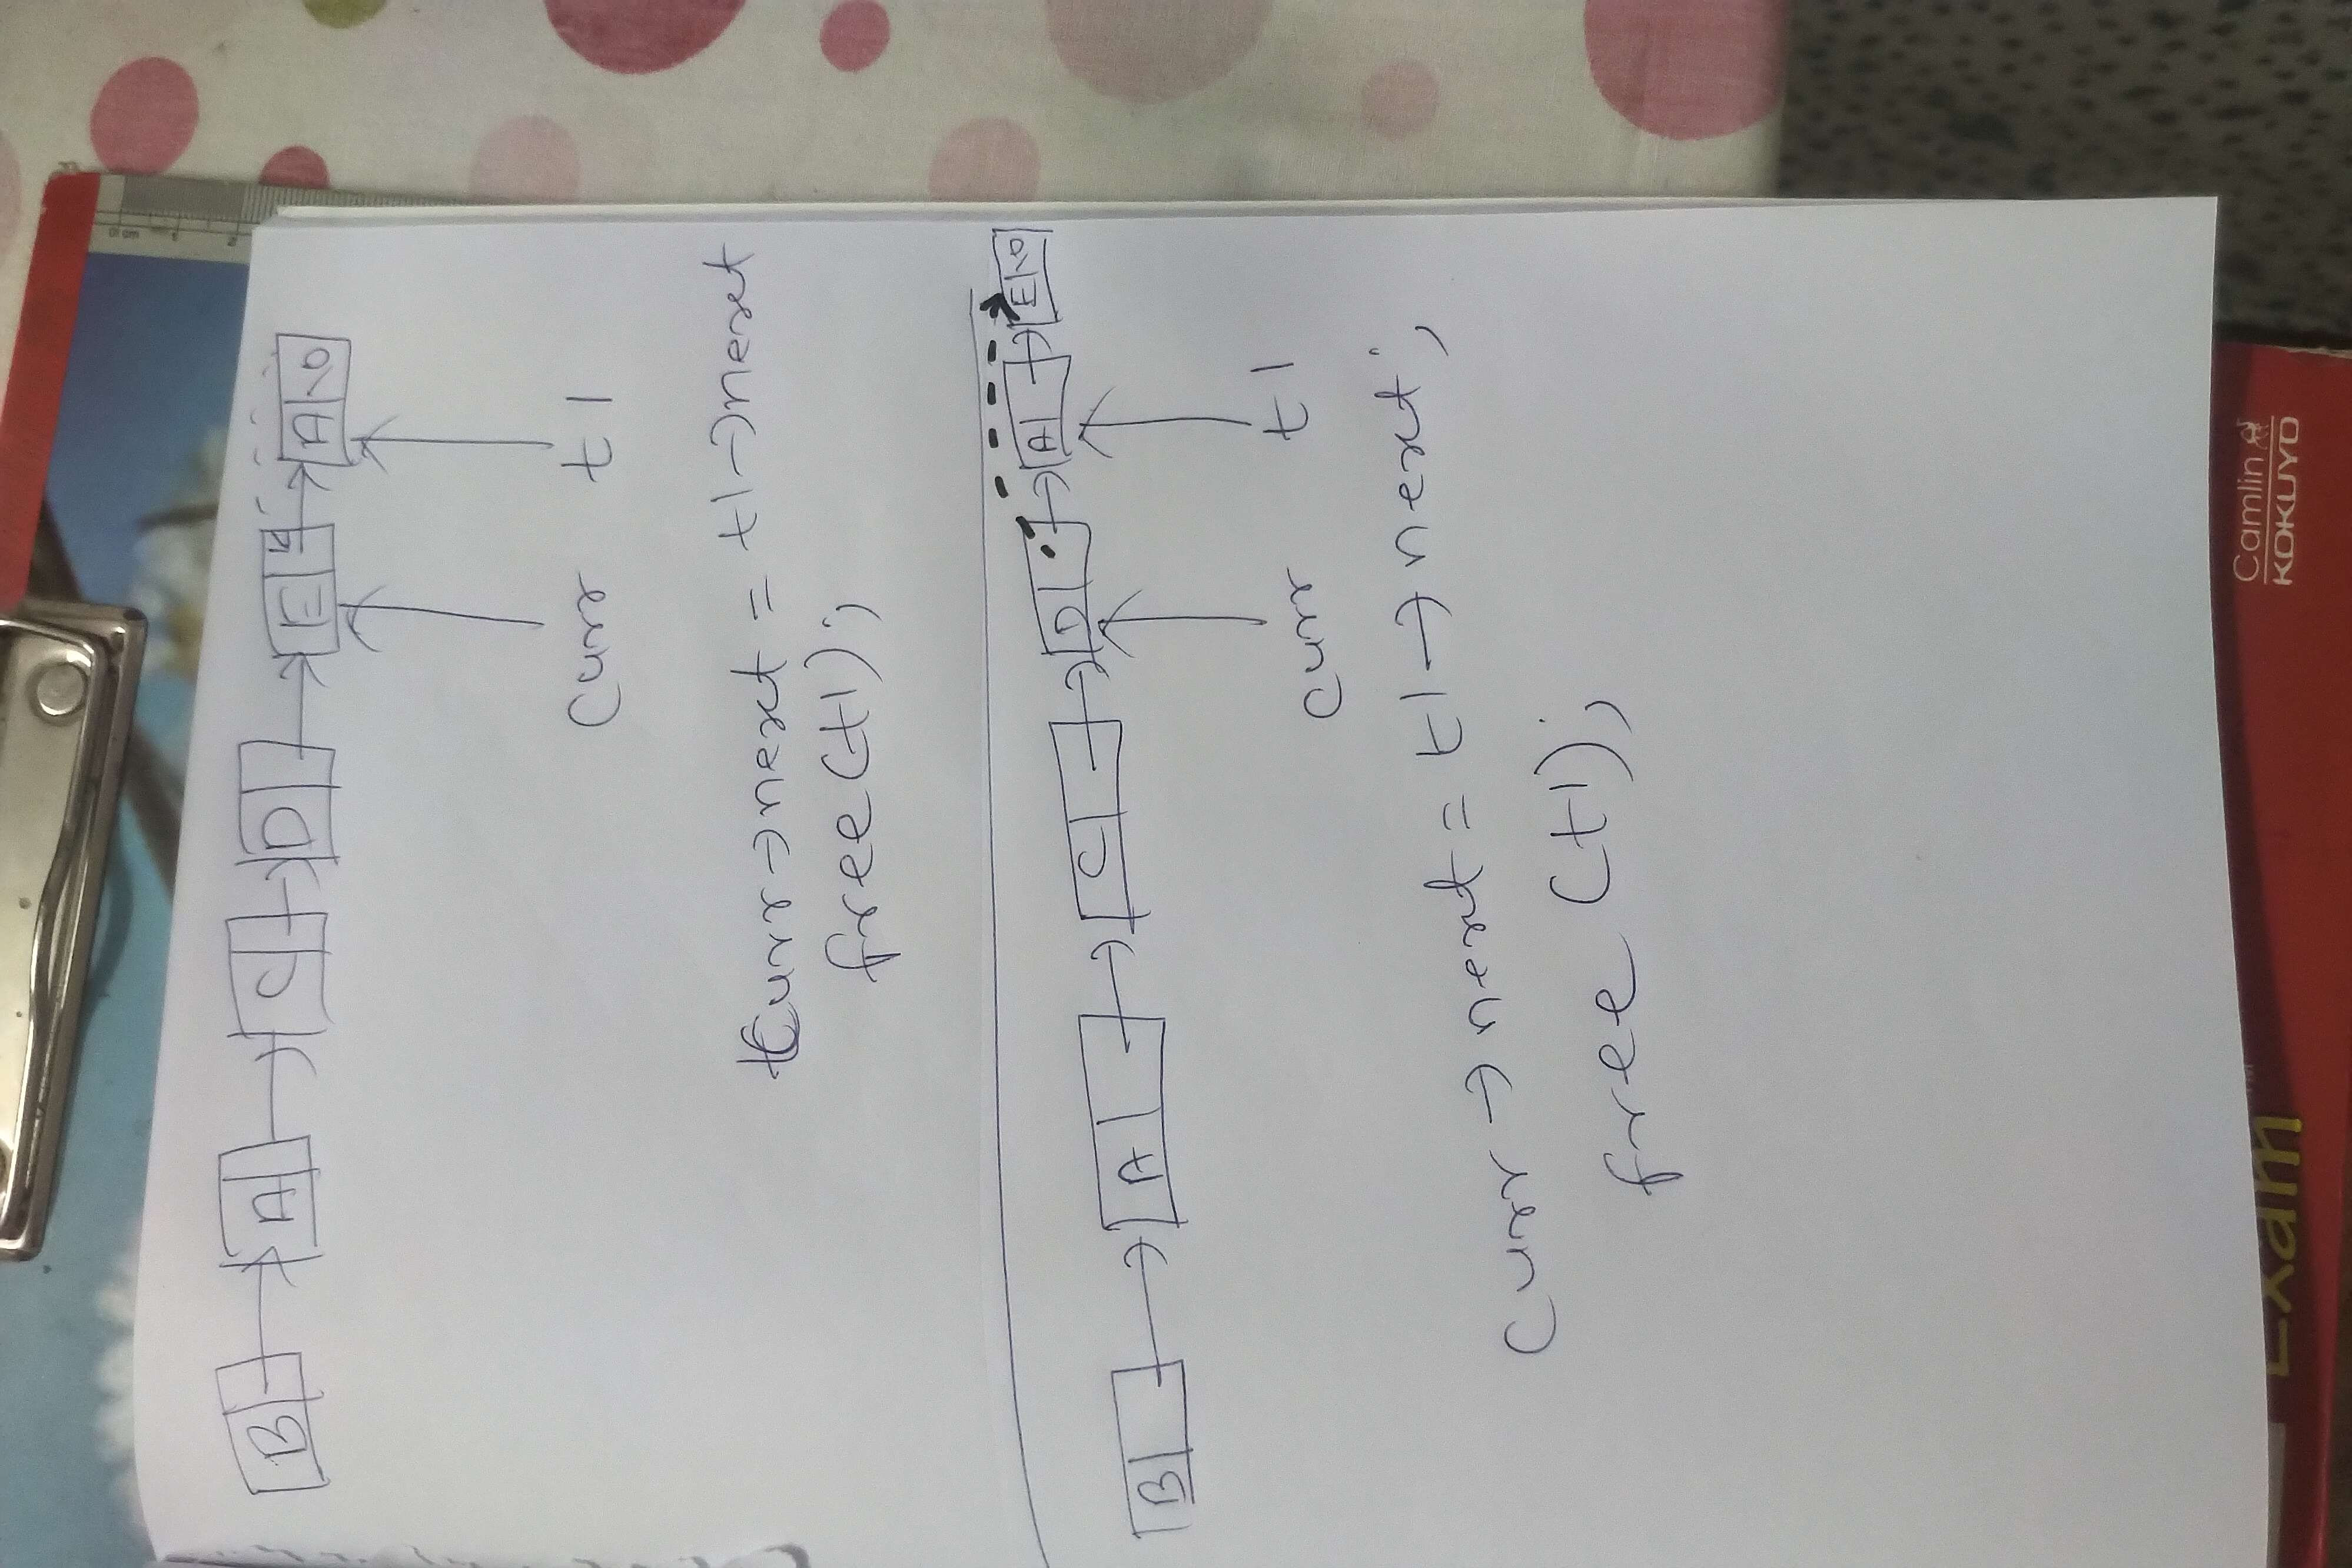 B A C D E A \0
curr t1
curr→next = t1→next
free(t1);
B A C D A E \0
curr t1
curr→next = t1→next;
free (t1);
Exam
Camlin
KOKUYO